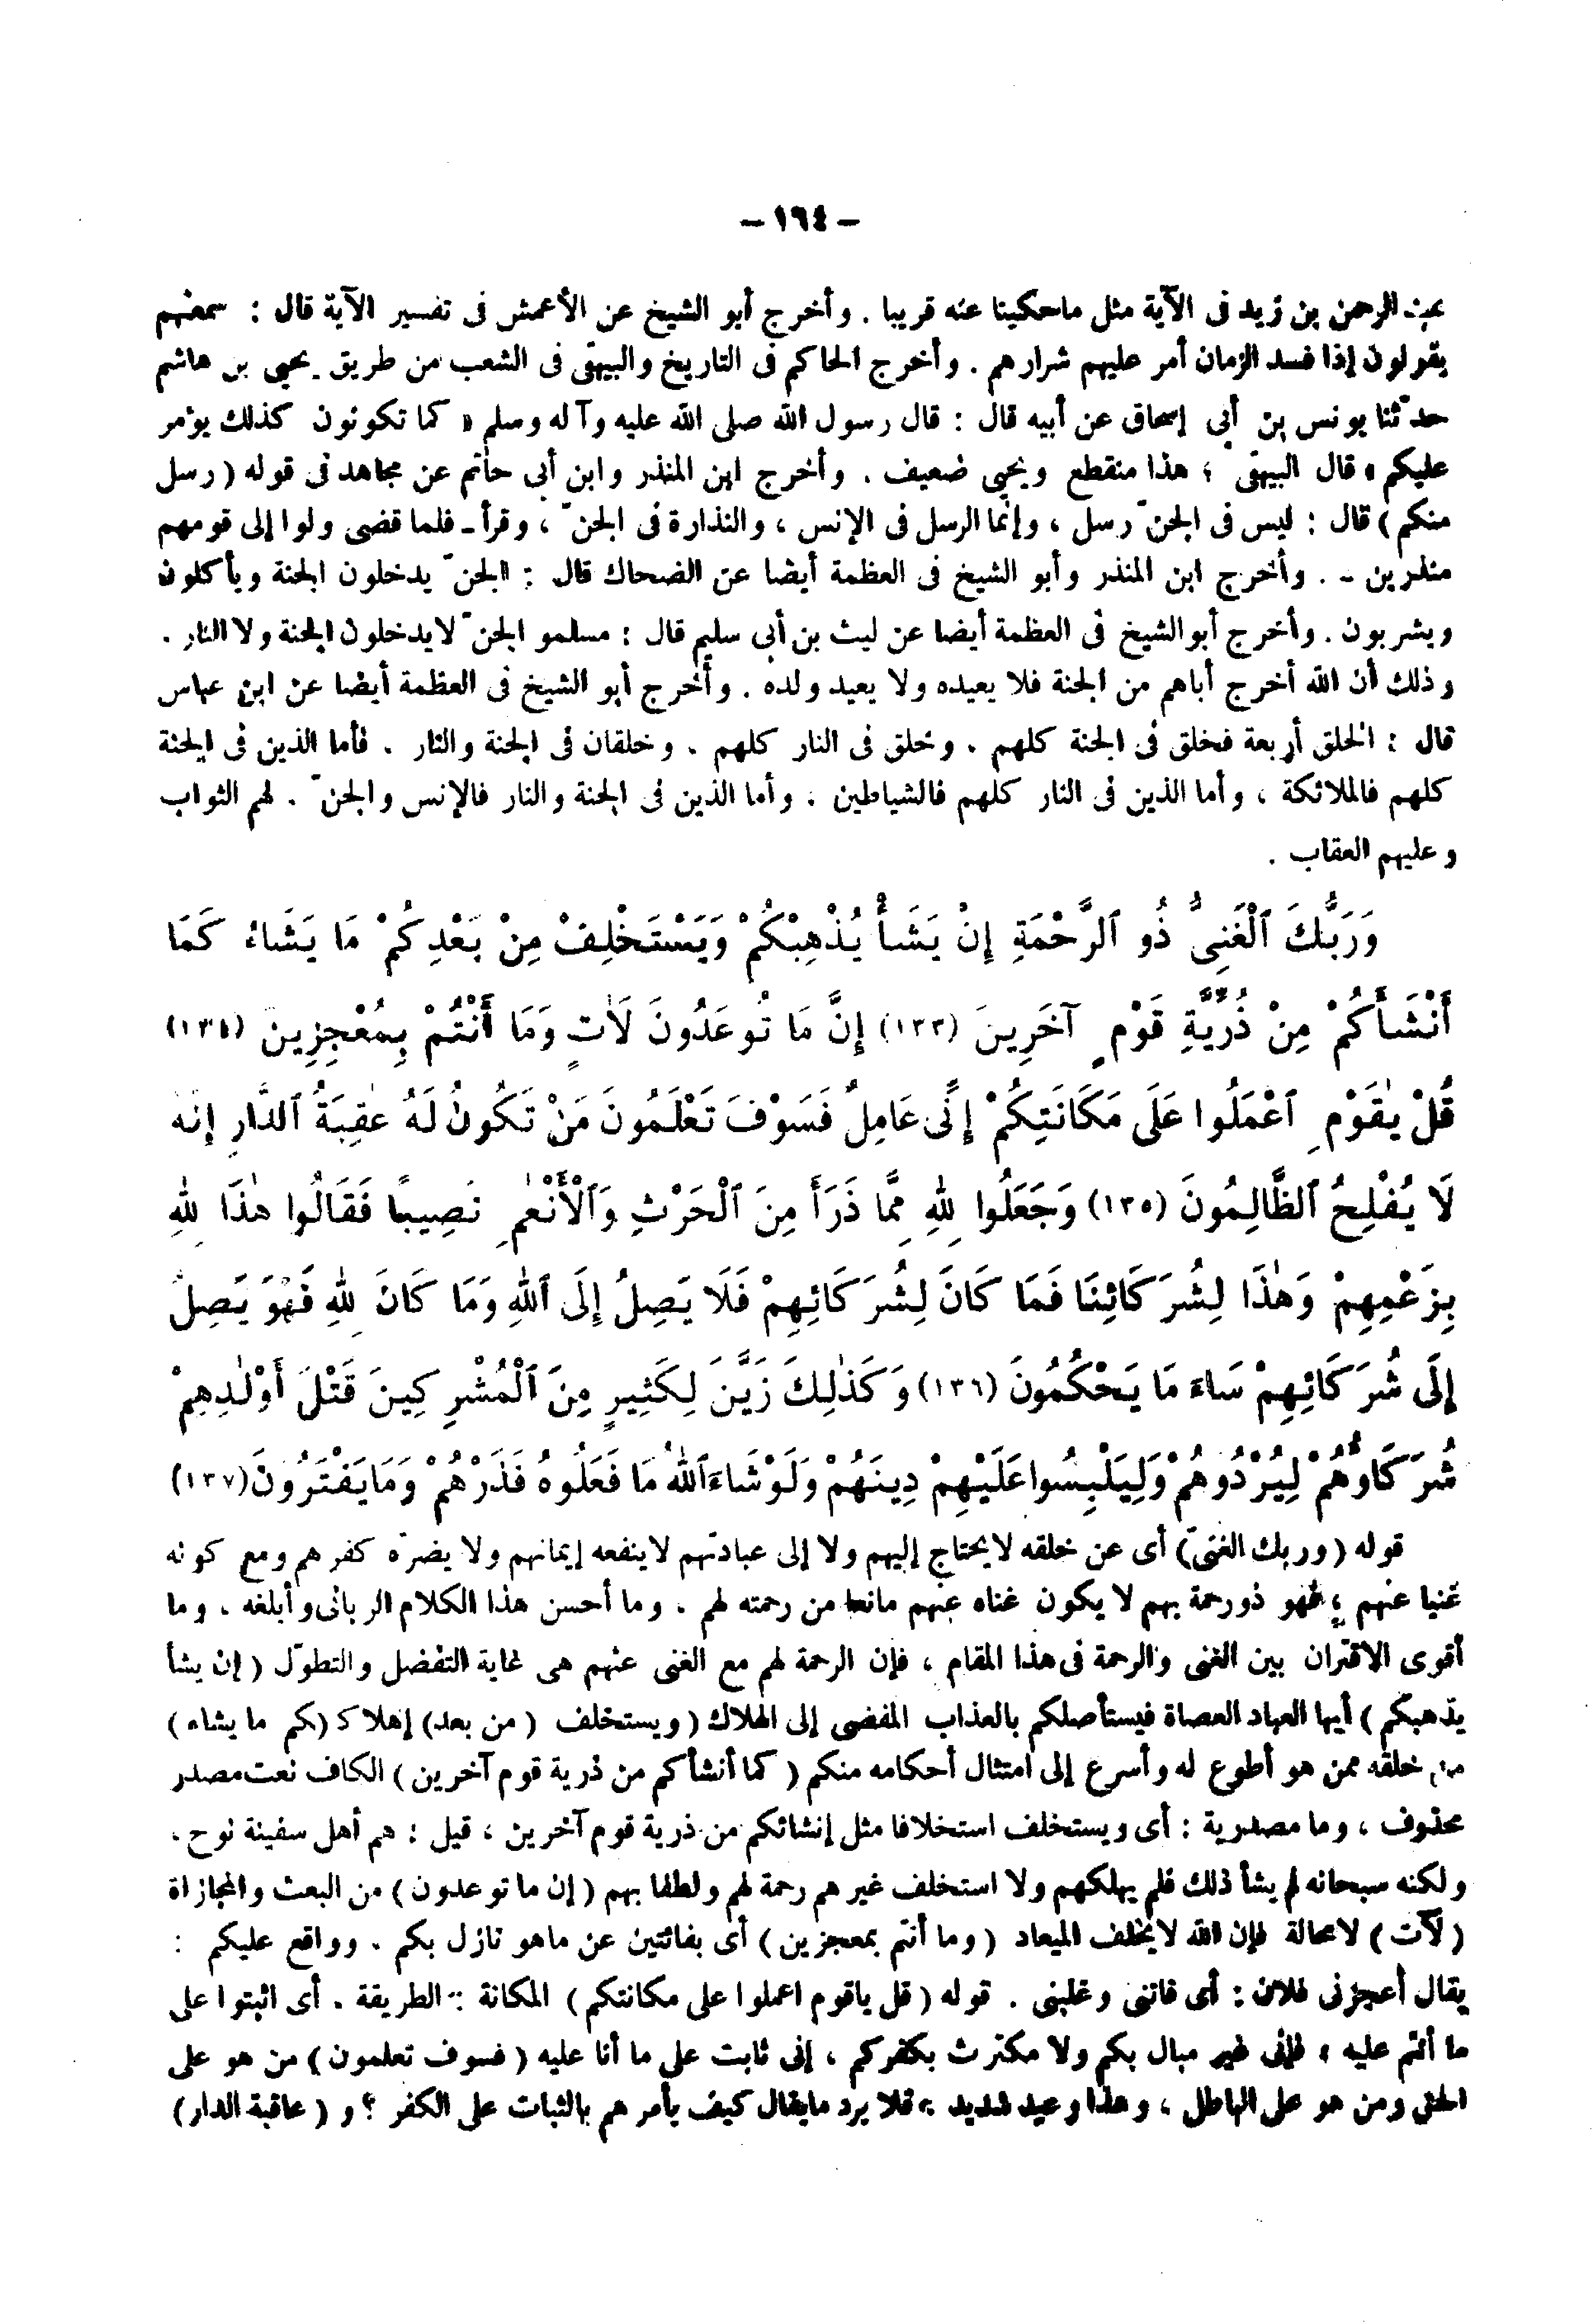 – ١٦٤ –
عبد الرحمن بن زيد فى الآية مثل ماحكينا عنه قريبا . وأخرج أبو الشيخ عن الأعمش فى تفسير الآية قال : سمعتهم
يقولون إذا فسد الزمان أمر عليهم شرارهم . وأخرج الحاكم فى التاريخ والبيهقى فى الشعب من طريق يحيى بن هاشم
حدّثنا يونس بن أبى إسحاق عن أبيه قال : قال رسول الله صلى الله عليه وآله وسلم « كما تكونون كذلك يؤمر
عليكم » قال البيهقى : هذا منقطع ويحيى ضعيف . وأخرج ابن المنذر وابن أبى حاتم عن مجاهد فى قوله ( رسل
منكم ) قال : ليس فى الجنّ رسل ، وإنما الرسل فى الإنس ، والنذارة فى الجنّ ، وقرأ ـ فلما قضى ولوا إلى قومهم
منذرين ـ . وأخرج ابن المنذر وأبو الشيخ فى العظمة أيضا عن الضحاك قال : الجنّ يدخلون الجنة ويأكلون
ويشربون . وأخرج أبو الشيخ فى العظمة أيضا عن ليث بن أبى سليم قال : مسلمو الجنّ لايدخلون الجنة ولا النار .
وذلك أن الله أخرج أباهم من الجنة فلا يعيده ولا يعيد ولده . وأخرج أبو الشيخ فى العظمة أيضا عن ابن عباس
قال : الخلق أربعة فخلق فى الجنة كلهم . وخلق فى النار كلهم . وخلقان فى الجنة والنار . فأما الذين فى الجنة
كلهم فالملائكة ، وأما الذين فى النار كلهم فالشياطين . وأما الذين فى الجنة والنار فالإنس والجنّ . لهم الثواب
وعليهم العقاب .
وَرَبُّكَ ٱلْغَنِىُّ ذُو ٱلرَّحْمَةِ إِنْ يَشَأْ يُذْهِبْكُمْ وَيَسْتَخْلِفْ مِنْ بَعْدِكُمْ مَا يَشَاءُ كَمَا
أَنْشَأَكُمْ مِنْ ذُرِّيَّةِ قَوْمٍ آخَرِينَ (١٣٣) إِنَّ مَا تُوعَدُونَ لَآتٍ وَمَا أَنْتُمْ بِمُعْجِزِينَ (١٣٤)
قُلْ يٰقَوْمِ ٱعْمَلُوا عَلَى مَكَانَتِكُمْ إِنِّى عَامِلٌ فَسَوْفَ تَعْلَمُونَ مَنْ تَكُونُ لَهُ عٰقِبَةُ ٱلدَّارِ إِنَّهُ
لَا يُفْلِحُ ٱلظَّالِمُونَ (١٣٥) وَجَعَلُوا لِلّٰهِ مِمَّا ذَرَأَ مِنَ ٱلْحَرْثِ وَٱلْأَنْعٰمِ نَصِيبًا فَقَالُوا هٰذَا لِلّٰهِ
بِزَعْمِهِمْ وَهٰذَا لِشُرَكَائِنَا فَمَا كَانَ لِشُرَكَائِهِمْ فَلَا يَصِلُ إِلَى ٱللّٰهِ وَمَا كَانَ لِلّٰهِ فَهُوَ يَصِلُ
إِلَى شُرَكَائِهِمْ سَاءَ مَا يَحْكُمُونَ (١٣٦) وَكَذٰلِكَ زَيَّنَ لِكَثِيرٍ مِنَ ٱلْمُشْرِكِينَ قَتْلَ أَوْلٰدِهِمْ
شُرَكَاؤُهُمْ لِيُرْدُوهُمْ وَلِيَلْبِسُوا عَلَيْهِمْ دِينَهُمْ وَلَوْ شَاءَ ٱللّٰهُ مَا فَعَلُوهُ فَذَرْهُمْ وَمَا يَفْتَرُونَ (١٣٧)
قوله ( وربك الغنىّ ) أى عن خلقه لايحتاج إليهم ولا إلى عبادتهم لاينفعه إيمانهم ولا يضرّه كفرهم ومع كونه
غنيا عنهم ، فهو ذو رحمة بهم لا يكون غناه عنهم مانعا من رحمته لهم . وما أحسن هذا الكلام الربانى وأبلغه . وما
أقوى الاقتران بين الغنى والرحمة فى هذا المقام ، فإن الرحمة لهم مع الغنى عنهم هى غاية التفضل والتطوّل ( إن يشأ
يذهبكم ) أيها العباد العصاة فيستأصلكم بالعذاب المفضى إلى الهلاك ( ويستخلف ( من بعد ) إهلاك ( كم ما يشاء )
من خلقه ممن هو أطوع له وأسرع إلى امتثال أحكامه منكم ( كما أنشأكم من ذرية قوم آخرين ) الكاف نعت مصدر
محذوف ، وما مصدرية : أى ويستخلف استخلافا مثل إنشائكم من ذرية قوم آخرين ، قيل : هم أهل سفينة نوح ،
ولكنه سبحانه لم يشأ ذلك فلم يهلكهم ولا استخلف غيرهم رحمة لهم ولطفا بهم ( إن ما توعدون ) من البعث والمجازاة
( لآت ) لامحالة فإن الله لايخلف الميعاد ( وما أنتم بمعجزين ) أى بفائتين عن ماهو نازل بكم . وواقع عليكم :
يقال أعجزنى فلان : أى فاتنى وغلبنى . قوله ( قل ياقوم اعملوا على مكانتكم ) المكانة : الطريقة . أى اثبتوا على
ما أنتم عليه ، فإنى غير مبال بكم ولا مكترث بكفركم ، إنى ثابت على ما أنا عليه ( فسوف تعلمون ) من هو على
الحق ومن هو على الباطل ، وهذا وعيد شديد ، فلا يرد مايقال كيف يأمرهم بالثبات على الكفر ؟ و ( عاقبة الدار )